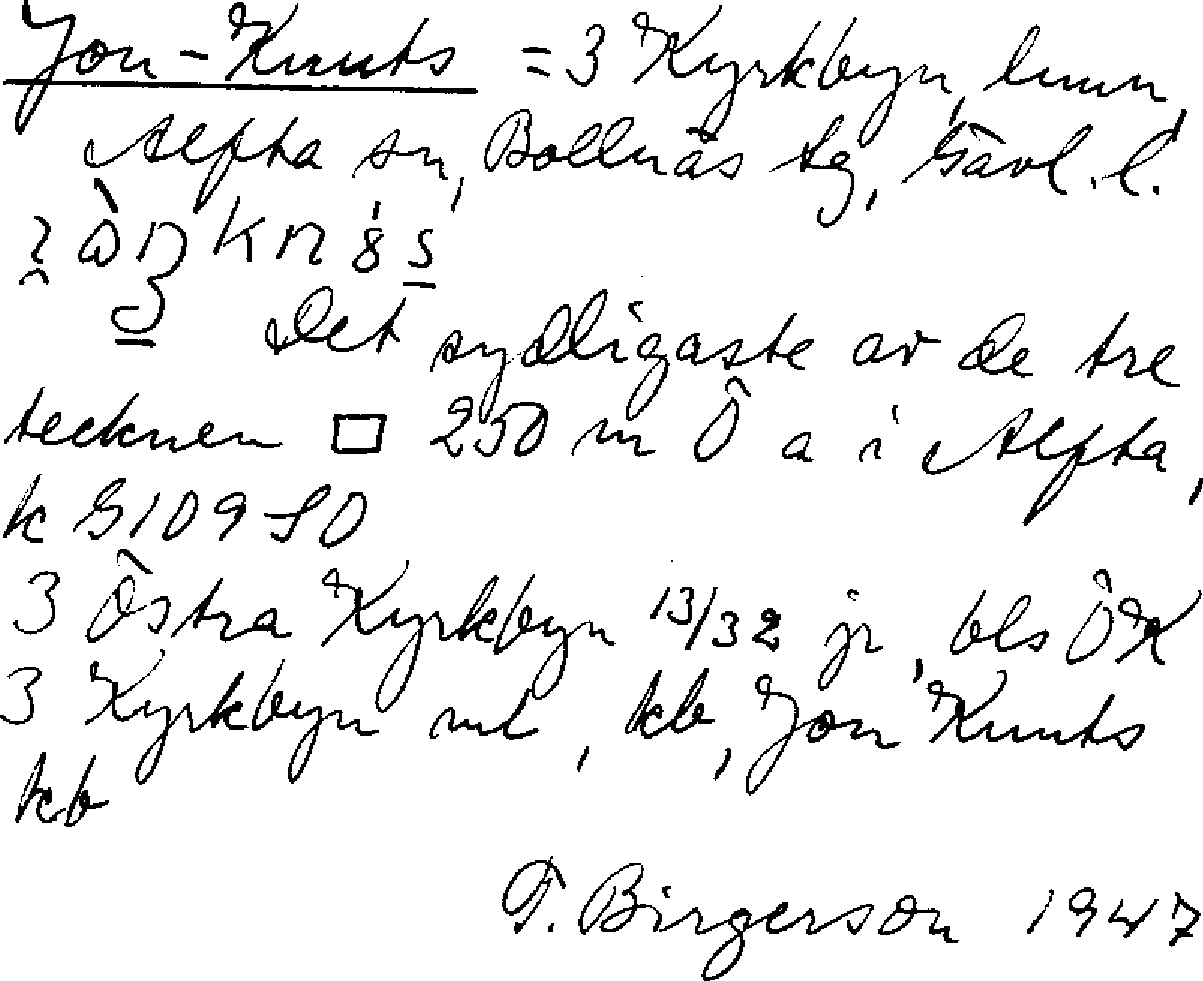 Jon-Knuts = 3 Kyrkbyn, hmn,
Alfta sn, Bollnäs tg, Gävl. l.
Det sydligaste av de tre
tecknen □ 250 m Ö a i Alfta,
k G109 SO
3 Östra Kyrkbyn 13/32 jr, bls ÖK
3 Kyrkbyn ml, kb, Jon Knuts
kb
F. Birgerson 1947